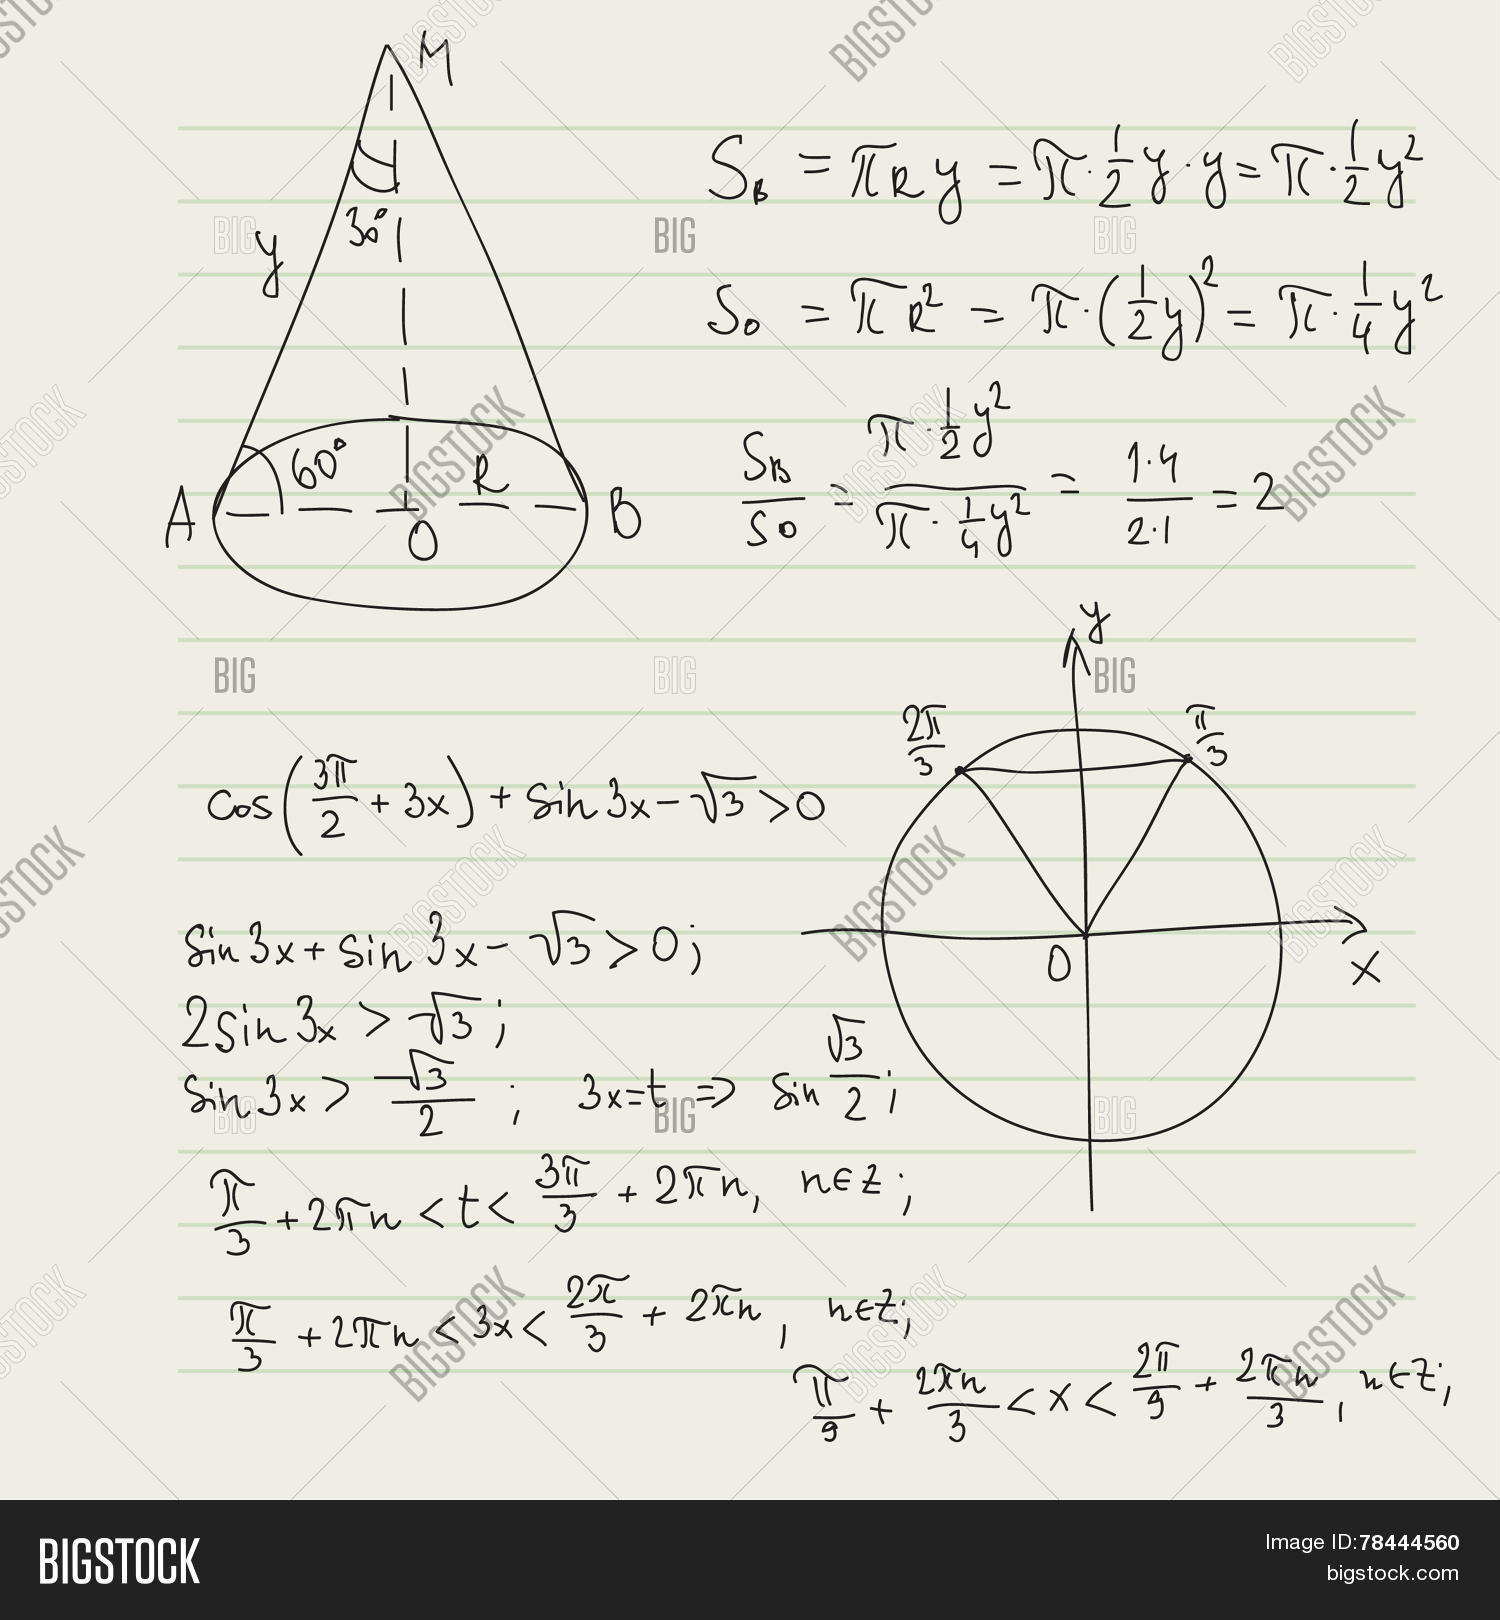 M
30°
y
60°
R
A
O
B
S_B = πRy = π·1/2 y·y = π·1/2 y²
S_O = πR² = π·(1/2 y)² = π·1/4 y²
S_B/S_O = (π·1/2 y²)/(π·1/4 y²) = 1·4/2·1 = 2
y
2π/3
π/3
O
x
cos(3π/2 + 3x) + sin 3x − √3 > 0
sin 3x + sin 3x − √3 > 0;
2 sin 3x > √3;
sin 3x > √3/2 ; 3x = t ⇒ sin √3/2;
π/3 + 2πn < t < 3π/3 + 2πn, n∈Z;
π/3 + 2πn < 3x < 2π/3 + 2πn, n∈Z;
π/9 + 2πn/3 < x < 2π/9 + 2πn/3, n∈Z;
BIGSTOCK
BIG
Image ID: 78444560
bigstock.com